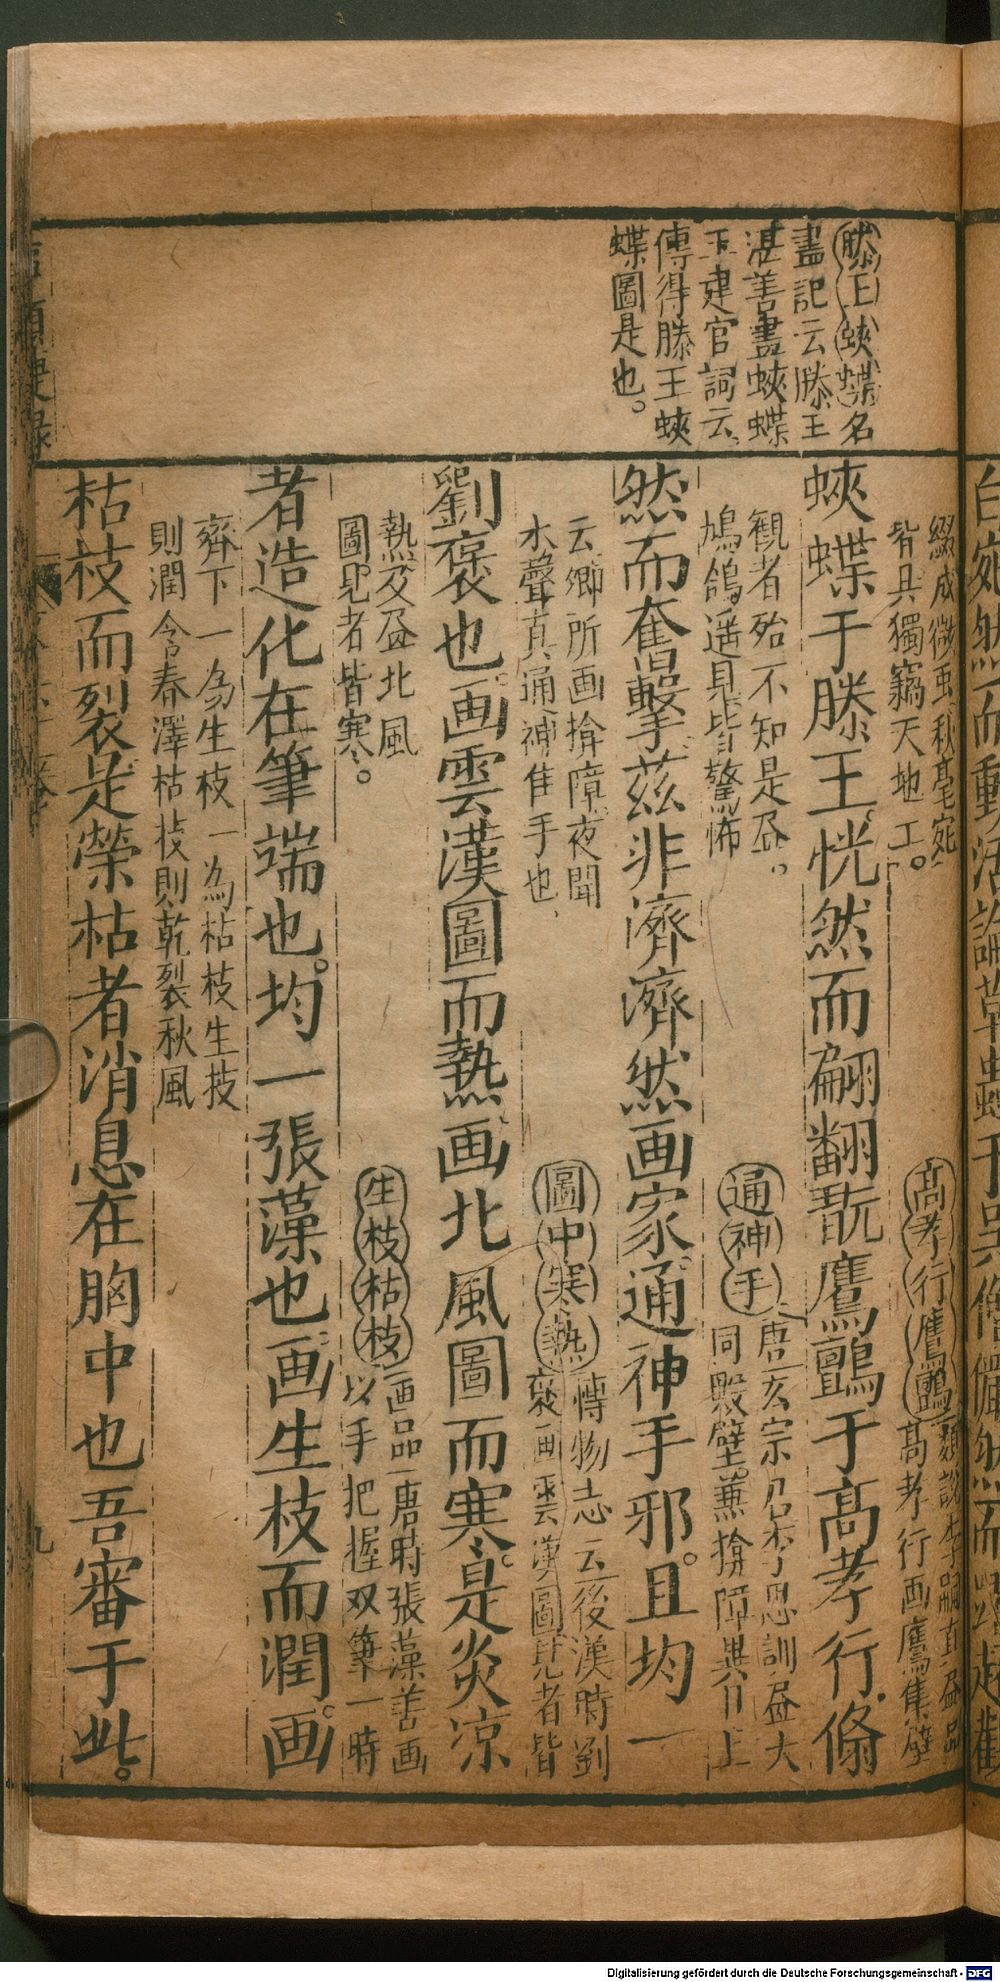 滕王蛺蝶名
畫記云滕王
湛善畫蛺蝶
王建宮詞云
傳得滕王蛺
蝶圖是也。
綴成微虫秋毫宛
皆具獨竊天地工。
高孝行鷹鸇類說李嗣真画品
高孝行画鷹集壁
蛺蝶于滕王恍然而翩翻翫鷹鸇于高孝行翛
觀者殆不知是画。
鳩鴿遥見皆驚怖
通神手唐玄宗召李思訓画大
同殿壁兼揜障異日上
然而奮擊茲非濟濟然画家通神手邪。且均一
云卿所画揜障夜聞
水聲真通神佳手也
圖中寒熱愽物志云後漢時劉
褒画雲漢圖見者皆
劉褒也画雲漢圖而熱画北風圖而寒是炎凉
熱及画北風
圖見者皆寒。
生枝枯枝画品唐時張藻善画
以手把握双筆一時
者造化在筆端也。均一張藻也画生枝而潤画
齊下一為生枝一為枯枝生技
則潤含春澤枯技則乾裂秋風
枯枝而裂是榮枯者消息在胸中也吾審于此。
九
Digitalisierung gefördert durch die Deutsche Forschungsgemeinschaft - DFG